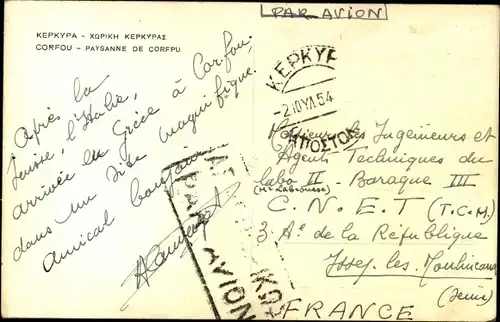 PAR AVION
ΚΕΡΚΥΡΑ - ΧΩΡΙΚΗ ΚΕΡΚΥΡΑΣ
CORFOU - PAYSANNE DE CORFPU
Après la
Suisse, l'Italie,
arrivée en Grèce à Corfou,
dans un site magnifique.
Amical bonjour
ΚΕΡΚΥΡ
-2 ΙΟΥΛ 54
ΑΠΟΣΤΟΛ
Messieurs les Ingénieurs et
Agents Techniques du
labo II - Baraque III
(Mr Labrousse)
C.N.E.T (T.C.M.)
3 Av de la République
Issy-les-Moulineaux
(Seine)
FRANCE
PAR AVION